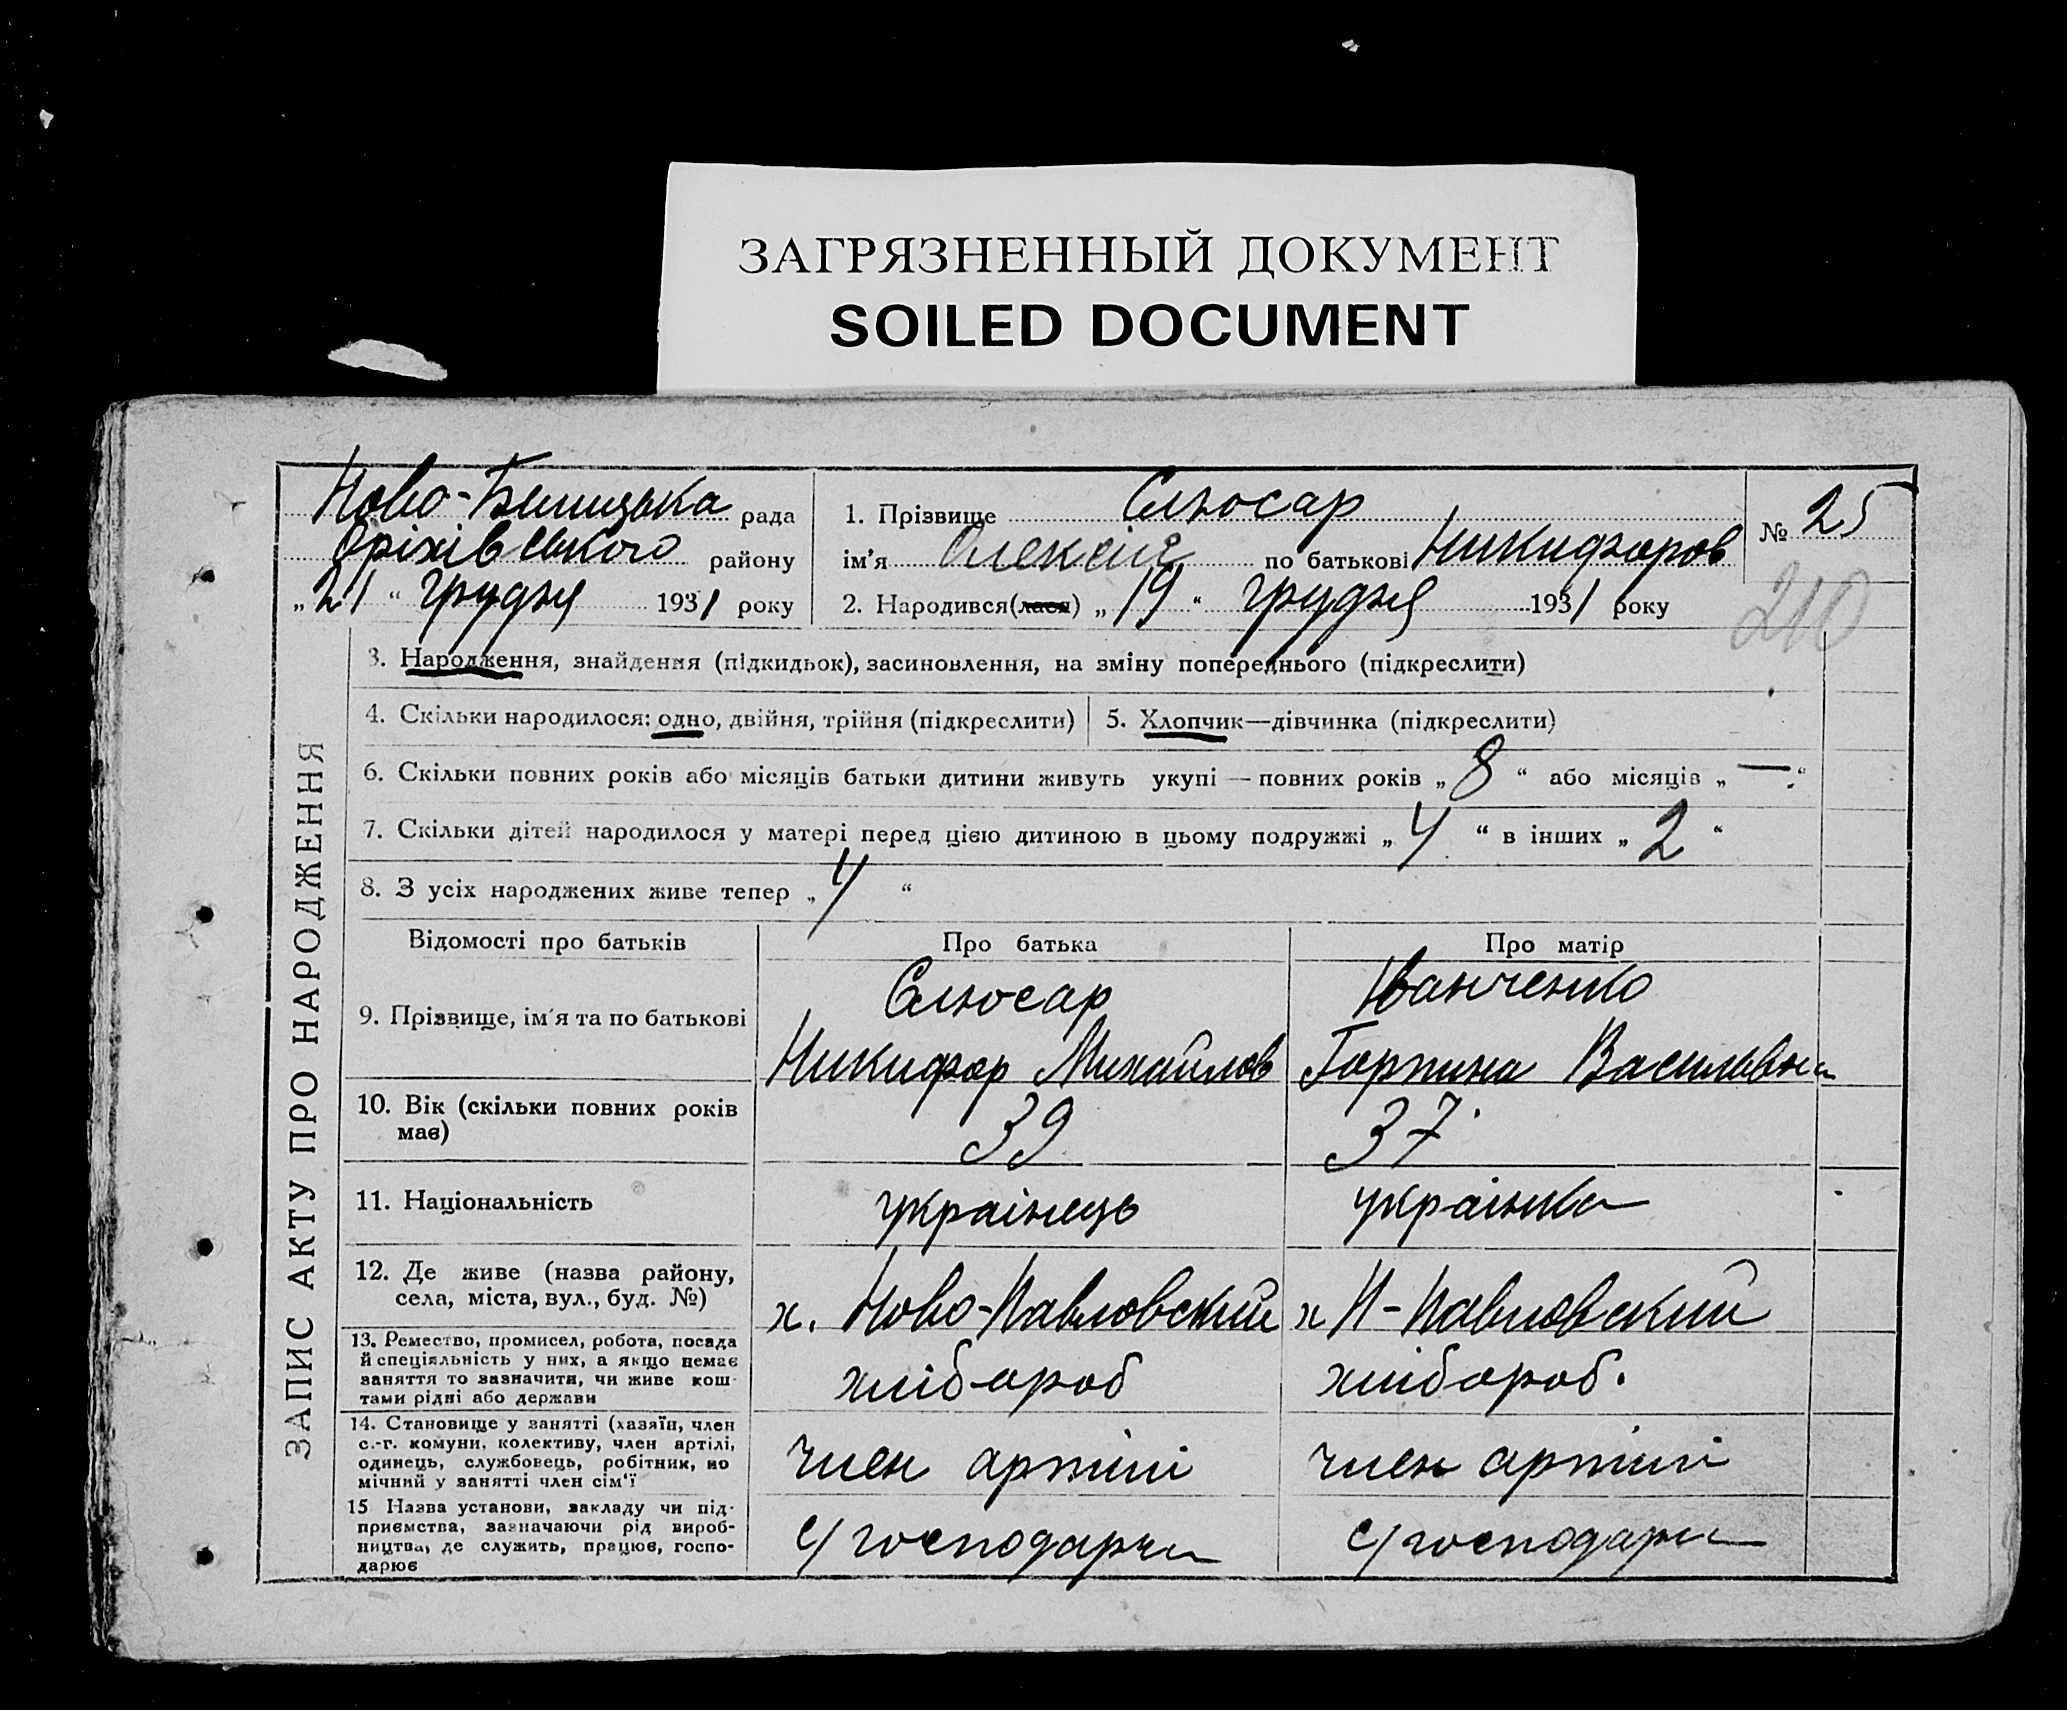 ЗАГРЯЗНЕННЫЙ ДОКУМЕНТ
SOILED DOCUMENT
ЗАПИС АКТУ ПРО НАРОДЖЕННЯ
Ново- рада
Оріхівського району
„21“ грудня 1931 року
1. Прізвище Слюсар
ім'я Олексій по батькові Никифоров
2. Народився(лася) „19“ грудня 1931 року
№ 25
210
3. Народження, знайдення (підкидьок), засиновлення, на зміну попереднього (підкреслити)
4. Скільки народилося: одно, двійня, трійня (підкреслити)
5. Хлопчик—дівчинка (підкреслити)
6. Скільки повних років або місяців батьки дитини живуть укупі — повних років „8“ або місяців „—“
7. Скільки дітей народилося у матері перед цією дитиною в цьому подружжі „4“ в інших „2“
8. З усіх народжених живе тепер „4“
Відомості про батьків Про батька Про матір
9. Прізвище, ім'я та по батькові
Слюсар
Никифор Михайлов
Іванченко
Горпина Васильвна
10. Вік (скільки повних років
має)
39
37
11. Національність
українець
українка
12. Де живе (назва району,
села, міста, вул., буд. №)
х. Ново-Павловский
х Н-Павловский
13. Ремество, промисел, робота, посада
й спеціяльність у них, а якщо немає
заняття то зазначити, чи живе кош-
тами рідні або держави
хлібороб
хлібороб.
14. Становище у занятті (хазяїн, член
с.-г. комуни, колективу, член артілі,
одинець, службовець, робітник, по
мічний у занятті член сім'ї
член артілі
член артілі
15 Назва установи, закладу чи під-
приємства, зазначаючи рід вироб-
ництва, де служить, працює, госпо-
дарює
с/господарч
с/господарч